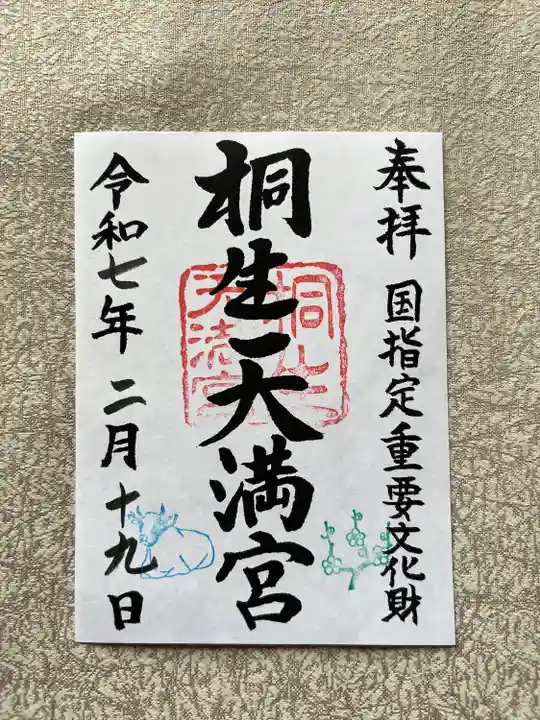 奉拝 国指定重要文化財
桐生天満宮
令和七年 二月十九日